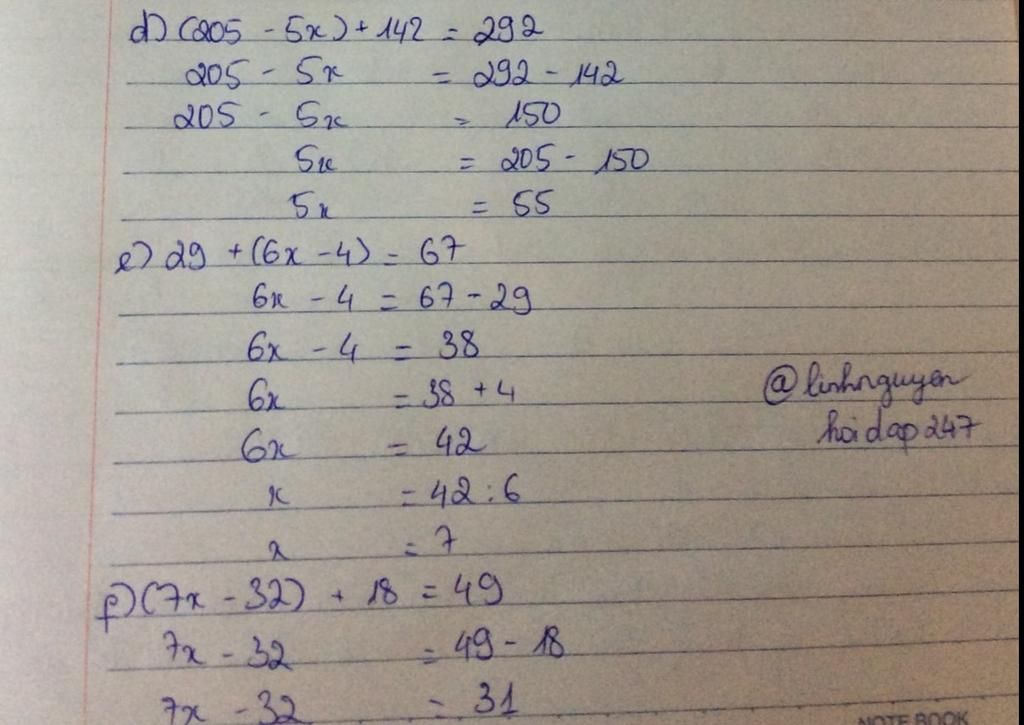 d) (205 - 5x) + 142 = 292
205 - 5x = 292 - 142
205 - 5x = 150
5x = 205 - 150
5x = 55
e) 29 + (6x - 4) = 67
6x - 4 = 67 - 29
6x - 4 = 38
6x = 38 + 4
6x = 42
x = 42 : 6
x = 7
@linhnguyen
hoidap247
f) (7x - 32) + 18 = 49
7x - 32 = 49 - 18
7x - 32 = 31
NOTE BOOK